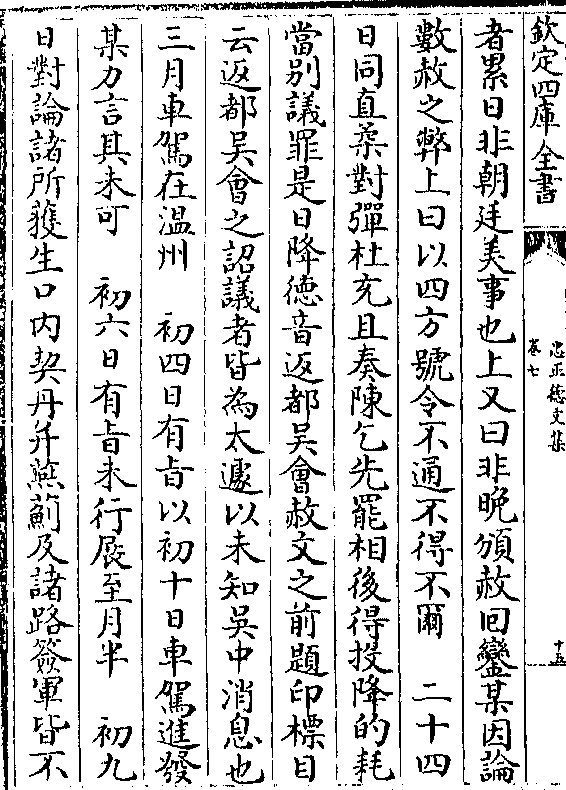 欽定四庫全書
忠正德文集
卷七
十五
者累日非朝廷美事也上又曰非晚頒赦囘鑾某因論
數赦之弊上曰以四方號令不通不得不爾　二十四
日同直柔對彈杜充且奏陳乞先罷相後得投降的耗
當别議罪是日降徳音返都吳會赦文之前題印標目
云返都吳會之詔議者皆為太遽以未知吳中消息也
三月車駕在温州　初四日有㫖以初十日車駕進發
某力言其未可　初六日有㫖未行展至月半　初九
日對論諸所獲生口内契丹并燕薊及諸路簽軍皆不